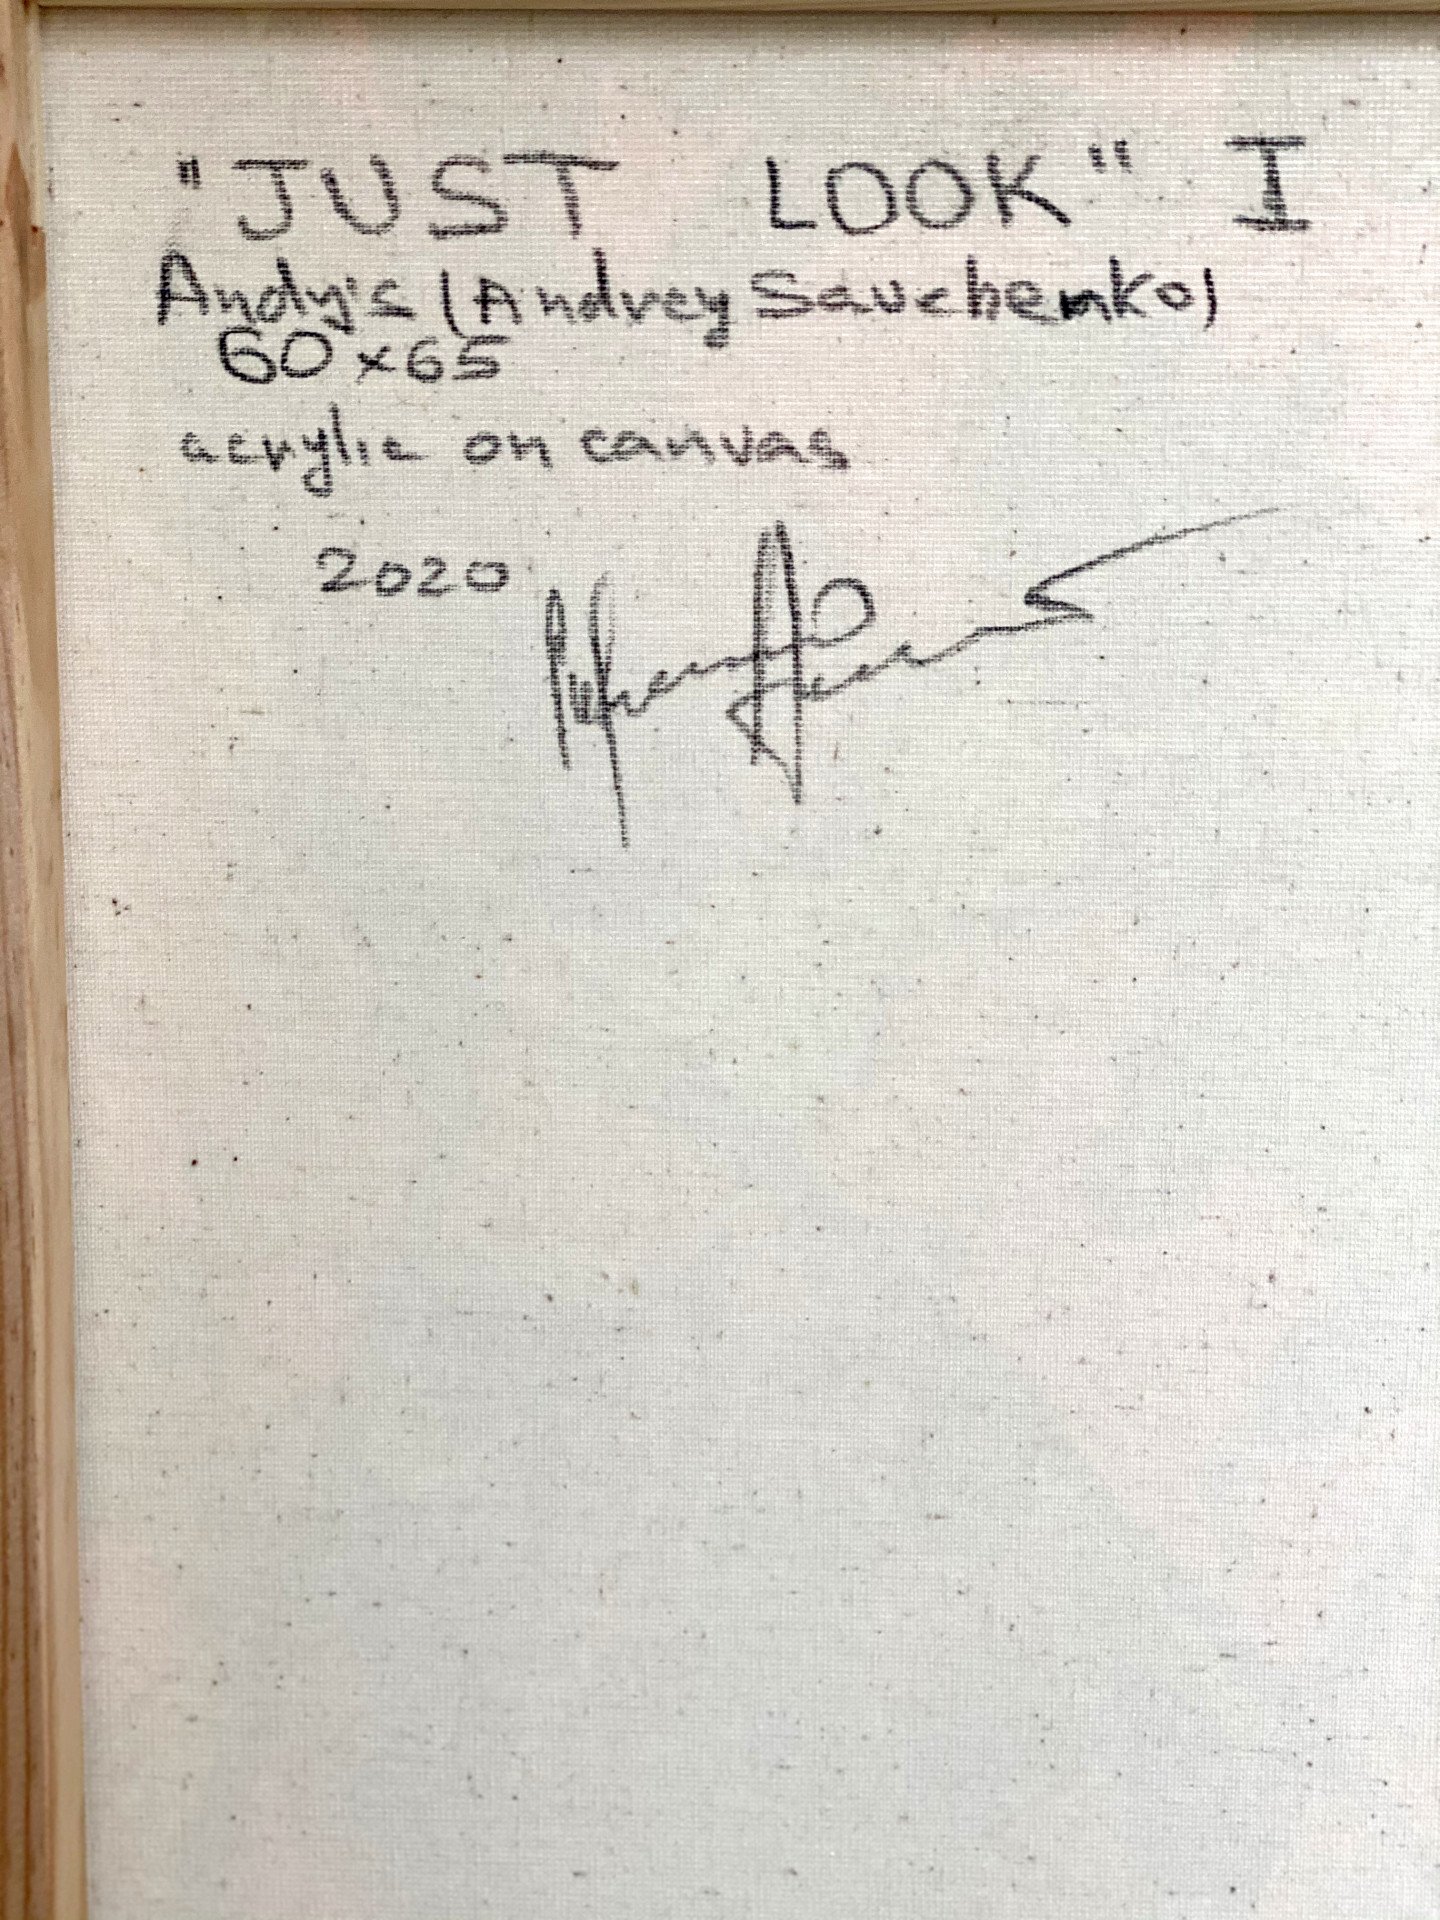 "JUST LOOK" I
Andy's (Andrey Savchenko)
60x65
acrylic on canvas
2020